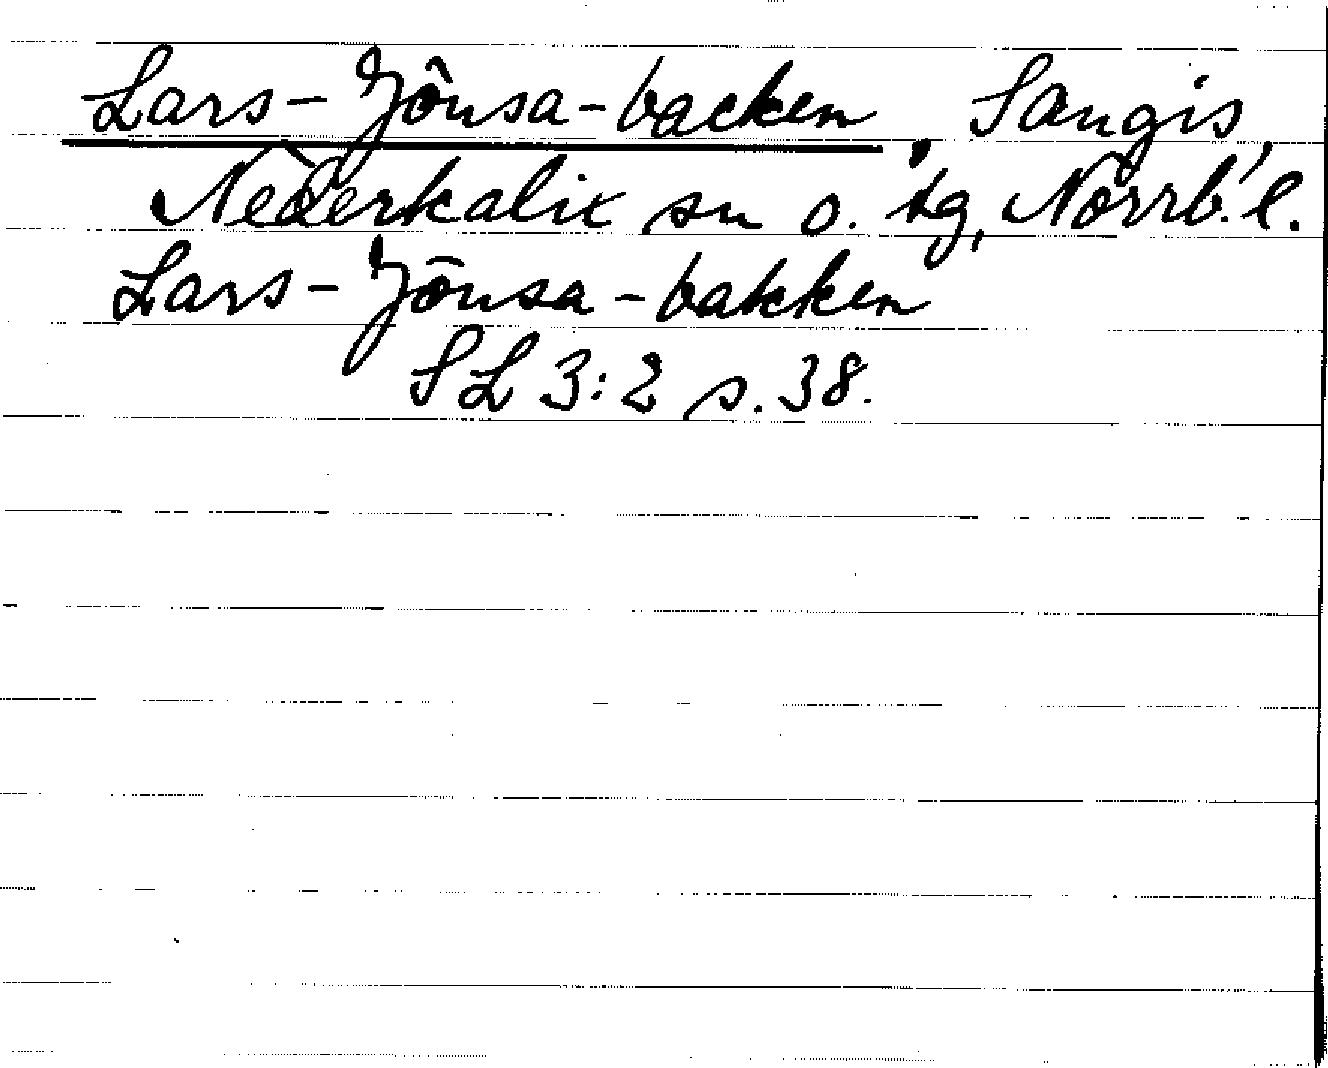 Lars-Jônsa-backen, Sangis,
Nederkalix sn o. tg, Norrb. l.
Lars-Jônsa-bakken
SL 3:2 s. 38.